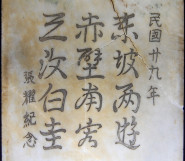 民國廿九年
東坡两遊
赤壁南容
三汝白圭
張耀紀念